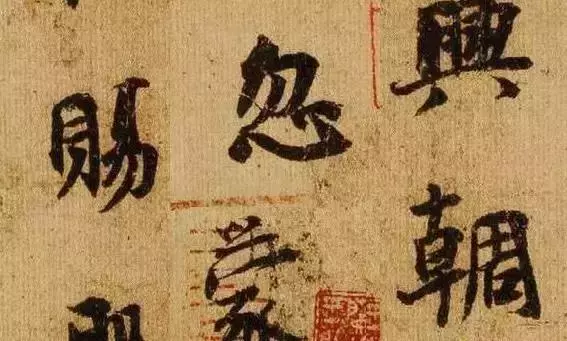 興輖
忽蒙
賜